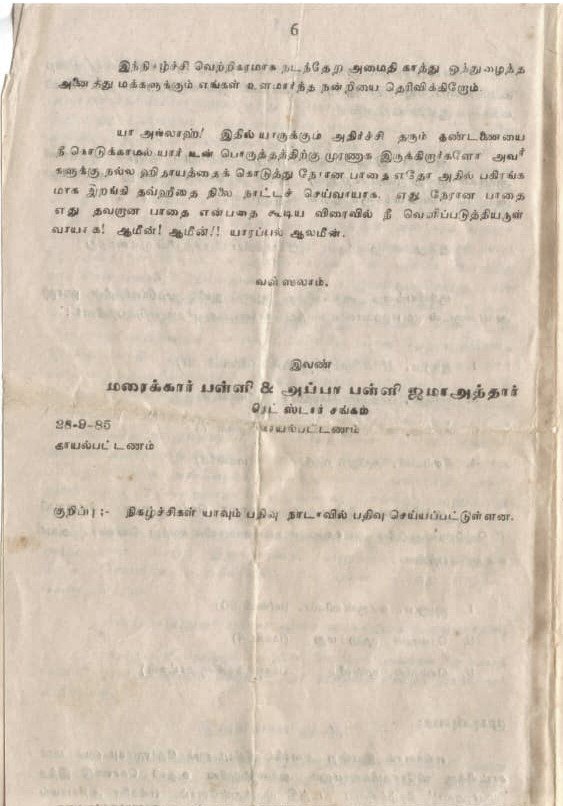 6
இந்நிகழ்ச்சி வெற்றிகரமாக நடந்தேற அமைதி காத்து ஒத்துழைத்த
அனைத்து மக்களுக்கும் எங்கள் உளமார்ந்த நன்றியை தெரிவிக்கிறோம்.
யா அல்லாஹ்! இதில் யாருக்கும் அதிர்ச்சி தரும் தண்டணையை
நீ கொடுக்காமல் யார் உன் பொருத்தத்திற்கு முரணாக இருக்கிறார்களோ அவர்
களுக்கு நல்ல ஹிதாயத்தைக் கொடுத்து நேரான பாதை எதோ அதில் பகிரங்க
மாக இறங்கி தவ்ஹீதை நிலை நாட்டச் செய்வாயாக. எது நேரான பாதை
எது தவறான பாதை என்பதை கூடிய விரைவில் நீ வெளிப்படுத்தியருள்
வாயாக! ஆமீன்! ஆமீன்!! யாரப்பல் ஆலமீன்.
வஸ்ஸலாம்.
இவண்
மரைக்கார் பள்ளி & அப்பா பள்ளி ஜமாஅத்தார்
ரெட் ஸ்டார் சங்கம்
28-9-85 காயல்பட்டணம்
காயல்பட்டணம்
குறிப்பு :- நிகழ்ச்சிகள் யாவும் பதிவு நாடாவில் பதிவு செய்யப்பட்டுள்ளன.